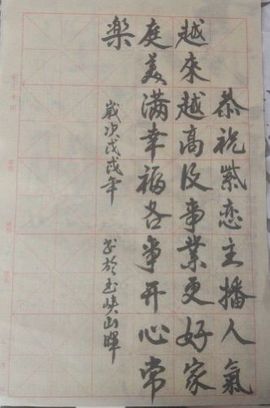 恭祝紫恋主播人氣
越來越高及事業更好家
庭美满幸福各事开心常
樂
歲次戊戌年
书於玉峡山暉